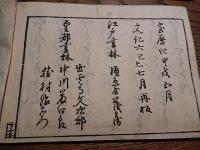 宝暦四甲戌五月
文化六己巳七月再板
江戸書林 須原屋茂兵衛
出雲寺文次郎
皇都書林 中川藤四郎
植村藤右衛門